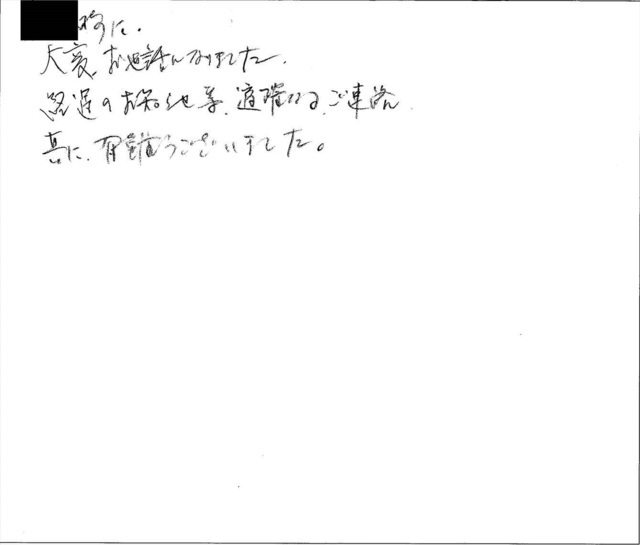 様に、
大変、お世話になりました。
経過のお知らせ等、適確なる、ご連絡、
真に、有難うございました。